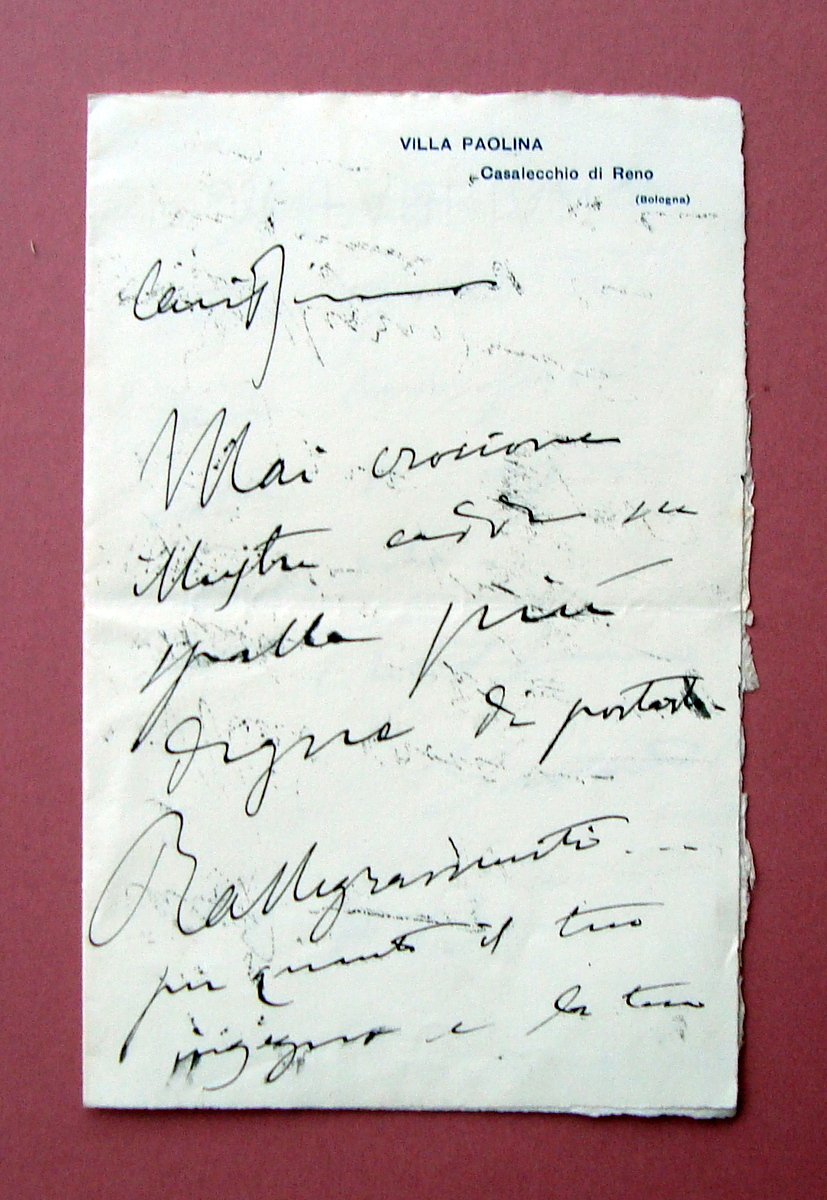 VILLA PAOLINA
Casalecchio di Reno
(Bologna)
Carissimo
Mai crocione
illustre cadde su
spalla più
degna di portarlo
Rallegramenti...
per quanto il tuo
ingegno e la tua